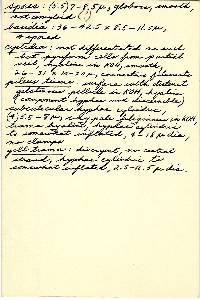 spores: (5.5) 7-8.5 µ, globose, smooth,
not amyloid (!)
basidia: 36-42.5 x 8.5-11.5 µ,
4 spored
cystidia: not differentiated as such
but pyriform cells from
veil, hyaline in KOH, smooth,
26-31 x 12-20 µ,
pileus tissue: surface with distinct
gelatinous pellicle in KOH, hyaline
(component hyphae not discernible)
subcuticular hyphae cylindric,
(4) 5.5-8 µ, very pale in KOH,
trama hyaline, hyphae cylindric
to somewhat inflated, 4-18 µ dia.
no clamps
gill trama: divergent, no central
strand, hyphae cylindric to
somewhat inflated, 2.5-11.5 µ dia.